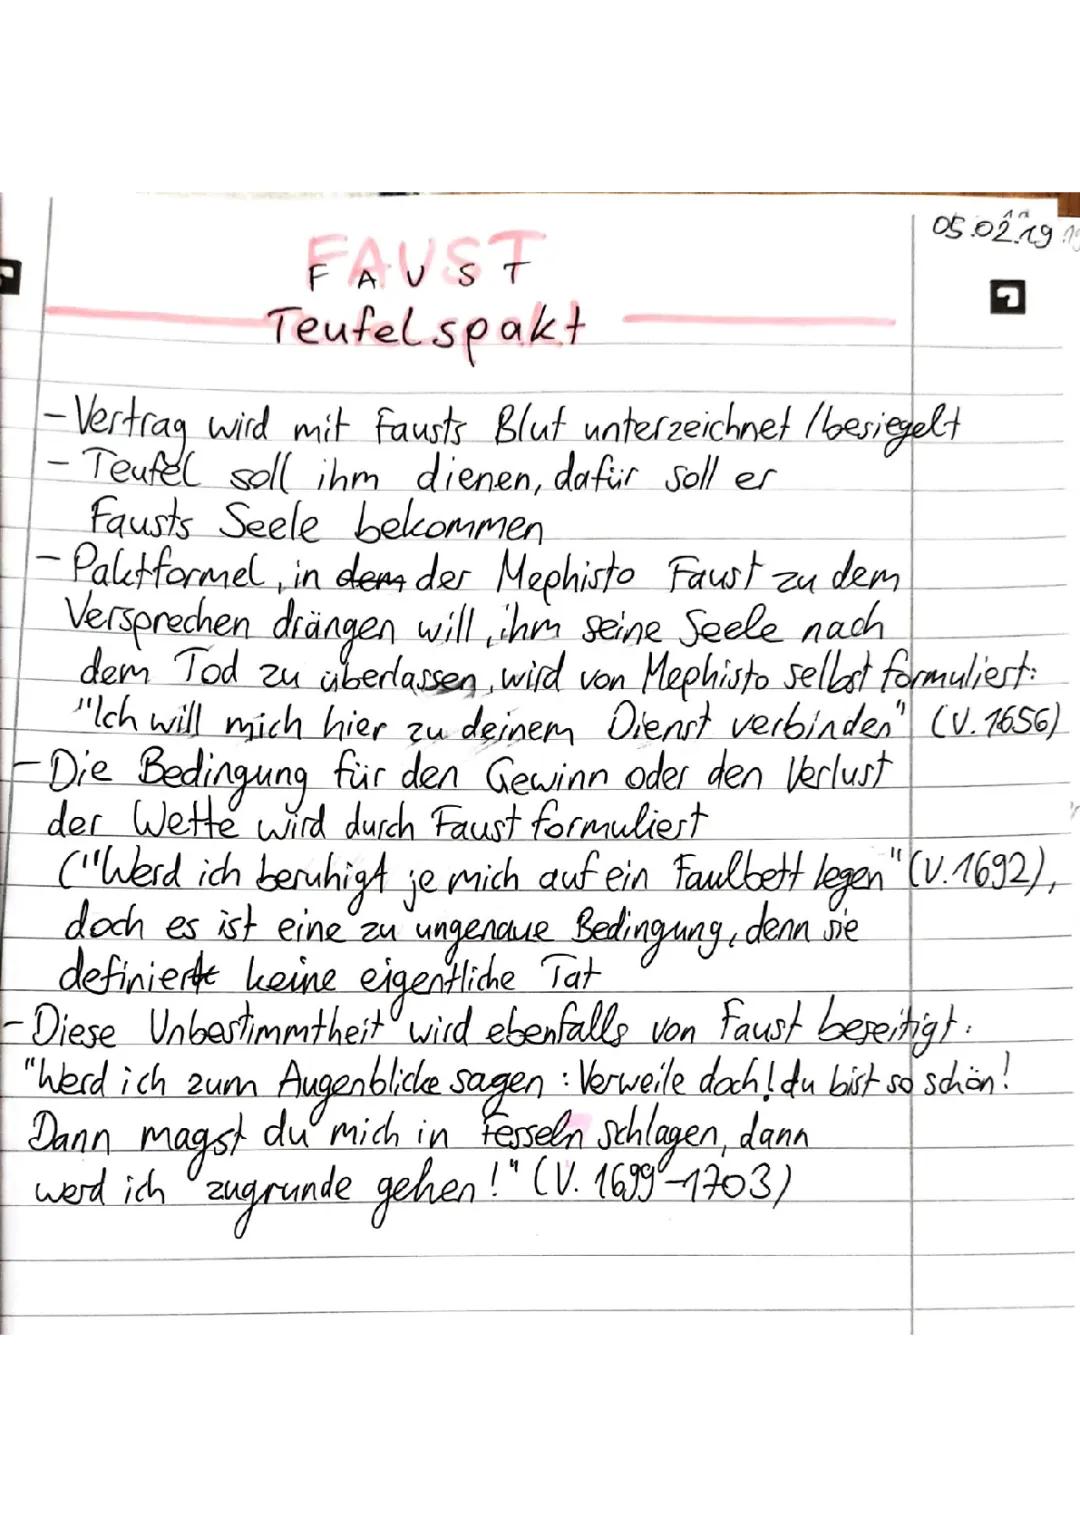 05.02.19
FAUST
FAUST
Teufelspakt
- Vertrag wird mit Fausts Blut unterzeichnet / besiegelt
- Teufel soll ihm dienen, dafür soll er
Fausts Seele bekommen
- Paktformel, in dem der Mephisto Faust zu dem
Versprechen drängen will, ihm seine Seele nach
dem Tod zu überlassen, wird von Mephisto selbst formuliert:
"Ich will mich hier zu deinem Dienst verbinden" (V. 1656)
- Die Bedingung für den Gewinn oder den Verlust
der Wette wird durch Faust formuliert
("Werd ich beruhigt je mich auf ein Faulbett legen" (V. 1692),
doch es ist eine zu ungenaue Bedingung, denn sie
definiert keine eigentliche Tat
- Diese Unbestimmtheit wird ebenfalls von Faust beseitigt:
"Werd ich zum Augenblicke sagen: Verweile doch! du bist so schön!
Dann magst du mich in Fesseln schlagen, dann
werd ich zugrunde gehen!" (V. 1699-1703)